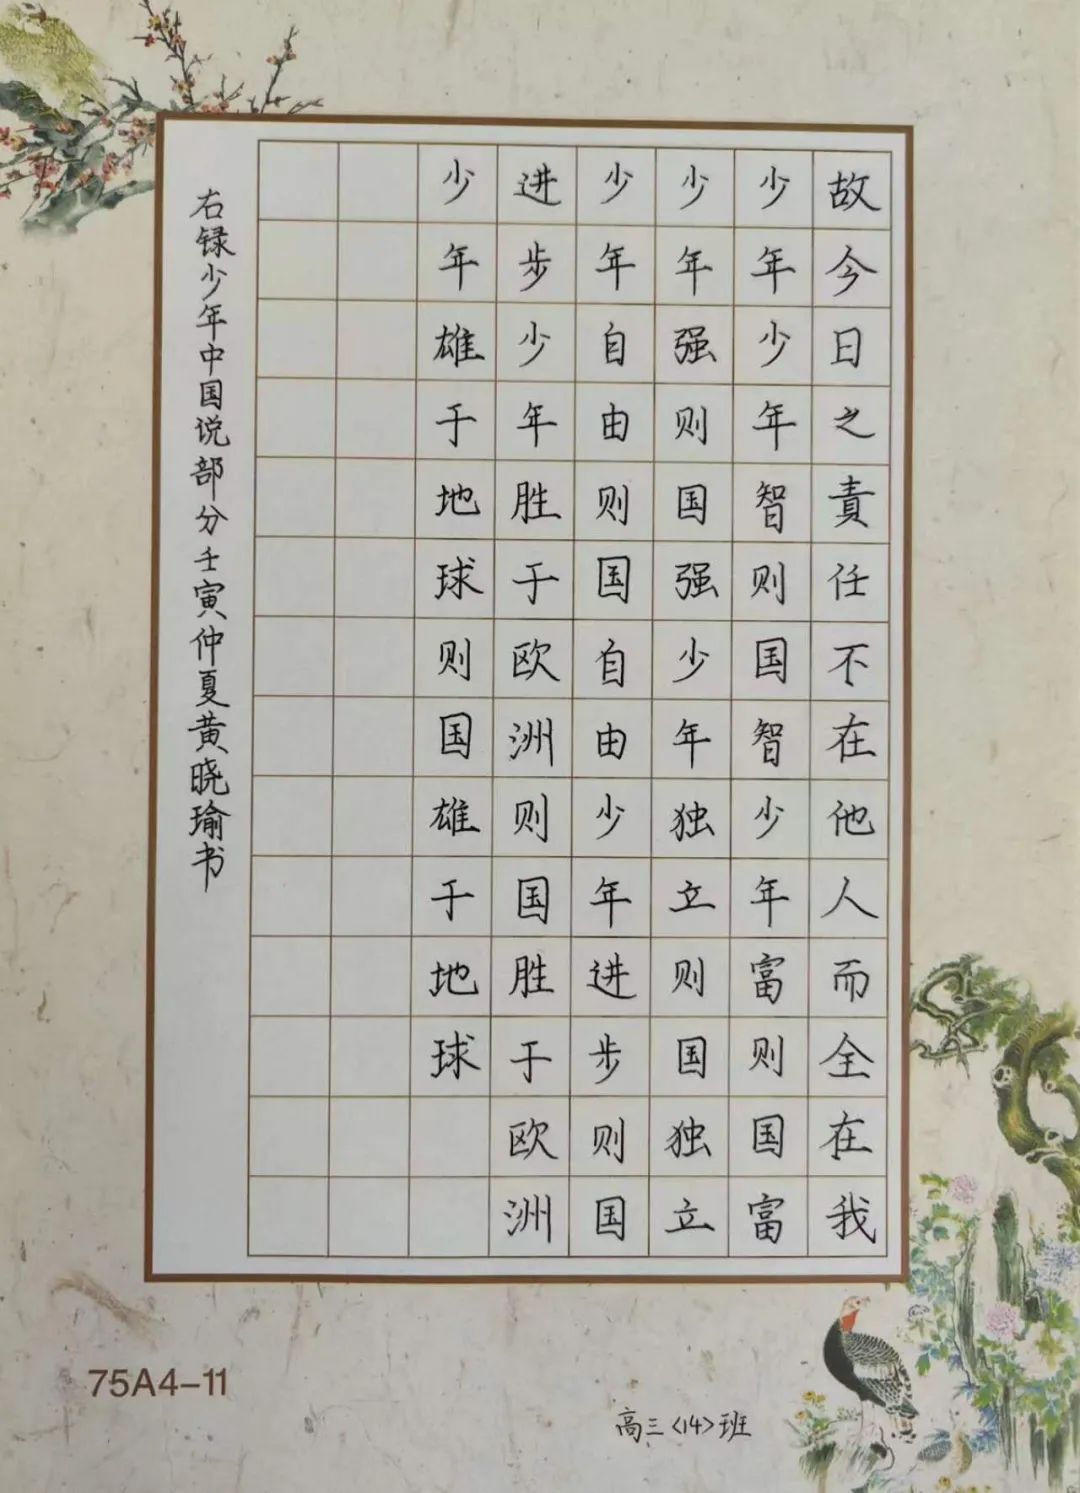 故今日之責任不在他人而全在我
少年少年智则国智少年富则国富
少年强则国强少年独立则国独立
少年自由则国自由少年进步则国
进步少年胜于欧洲则国胜于欧洲
少年雄于地球则国雄于地球
右録少年中国说部分壬寅仲夏黄晓瑜书
75A4-11
高三〈14〉班